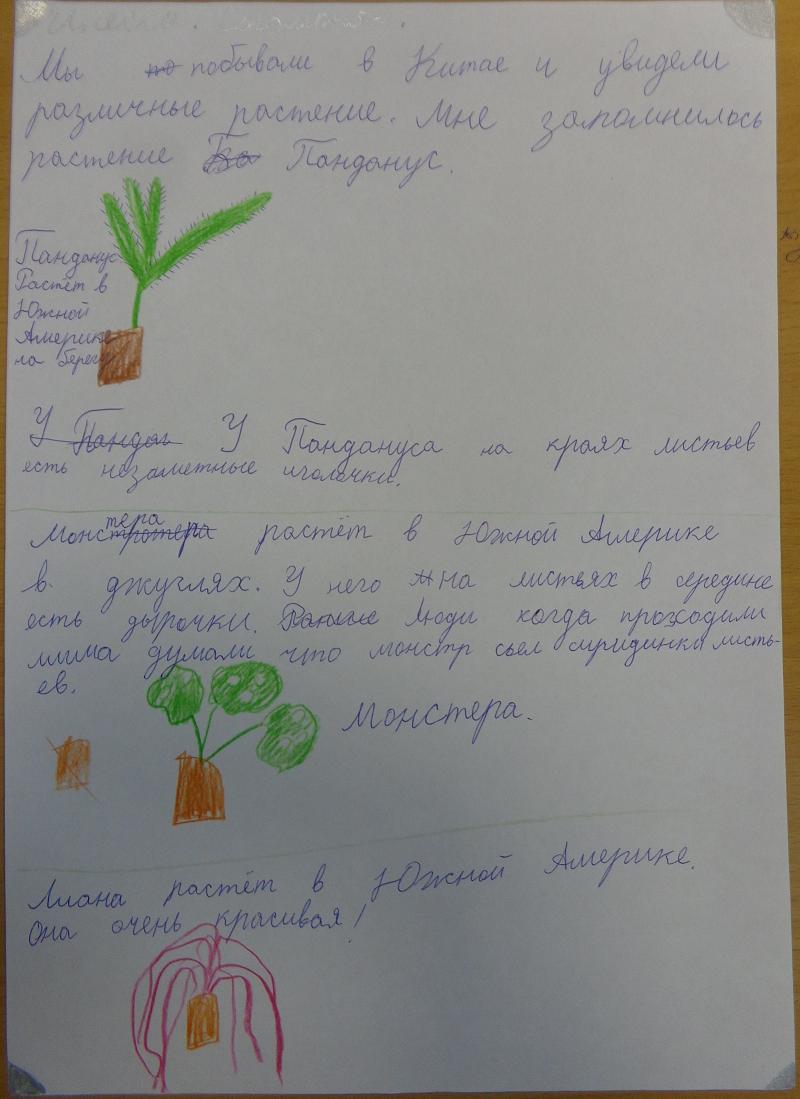 Мы по побывали в Китае и увидели
различные растение. Мне запомнилось
растение Ба Панданус.
Панданус
Растёт в
Южной
Америке
на берегу
У Пандан У Пандануса на краях листьев
есть незаметные иголочки.
Монстротера тера растёт в Южной Америке
в джуглях. У него на листьях в середине
есть дырочки. Раньше Люди когда проходили
мима думали что монстр сьел сиридинки листь-
ев.
Монстера.
Лиана растёт в Южной Америке.
Она очень красивая!